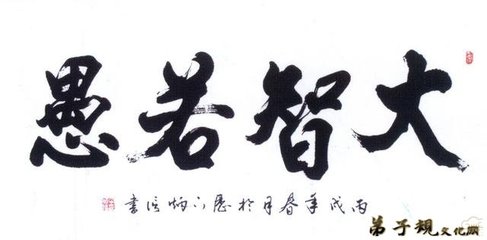 大智若愚
丙戌年春月於歷下炳書
弟子规文化网